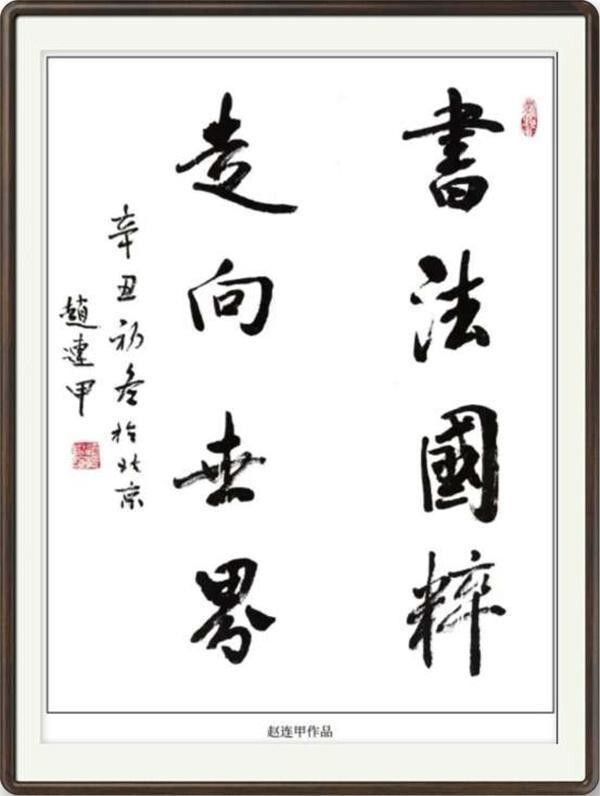 書法國粹
走向世界
辛丑初冬於北京
趙連甲
赵连甲作品